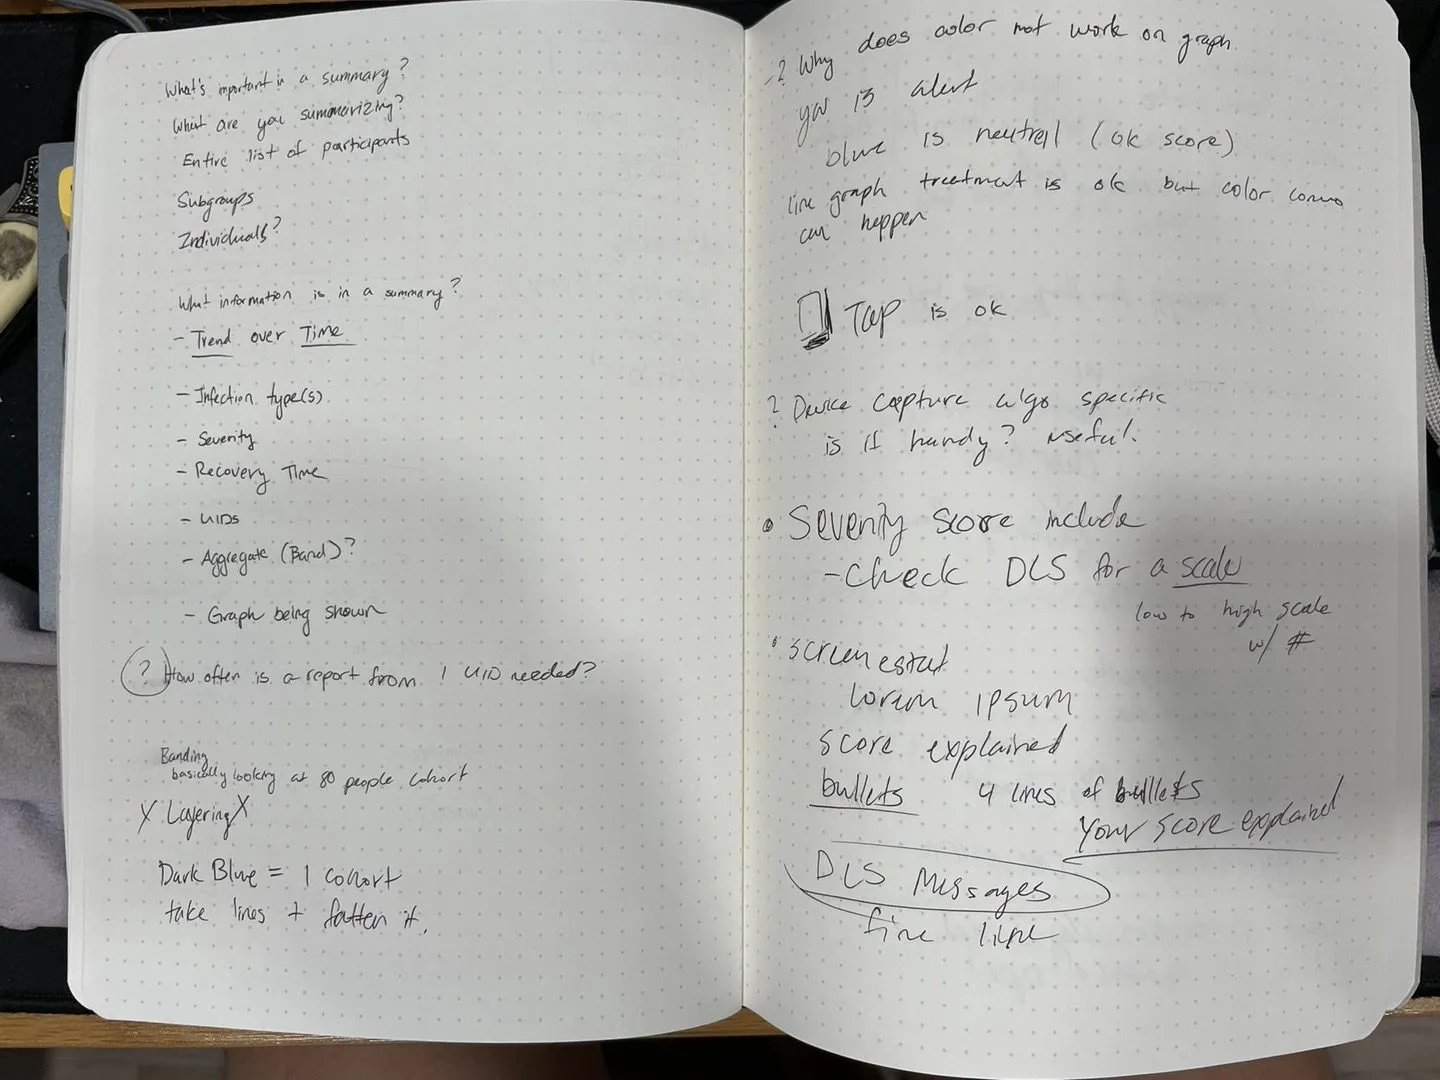 What's important in a summary?
What are you summarizing?
Entire list of participants
Subgroups
Individuals?
What information is in a summary?
- Trend over Time
- Infection type(s)
- Severity
- Recovery Time
- UIDs
- Aggregate (Band)?
- Graph being shown
? How often is a report from 1 UID needed?
Banding
basically looking at 80 people cohort
X Layering X
Dark Blue = 1 cohort
take lines + fatten it.
-? Why does color not work on graph
is alert
blue is neutral (ok score)
line graph treatment is ok but color convo
can happen
Tap is ok
? Device capture algo specific
is it handy? useful.
Severity score include
- check DLS for a scale
low to high scale
w/ #
screen
lorem ipsum
score explained
bullets 4 lines of bullets
Your score explained
DLS Messages
fine